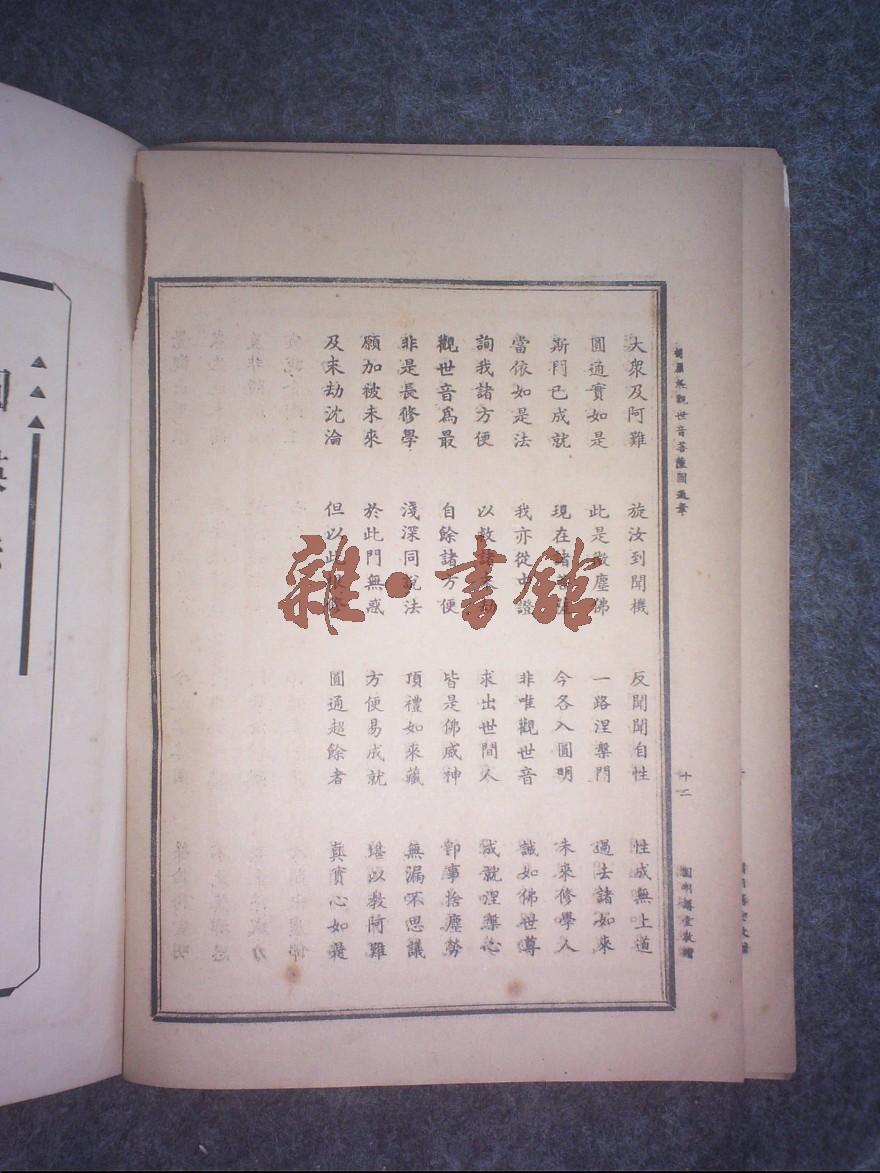 楞嚴經觀世音菩薩圓通章 十二 圓明講堂敬贈
大衆及阿難 旋汝到聞機 反聞聞自性 性成無上道
圓通實如是 此是微塵佛 一路涅槃門 過去諸如來
斯門已成就 現在諸菩薩 今各入圓明 未來修學人
當依如是法 我亦從中證 非唯觀世音 誠如佛世尊
詢我諸方便 以救諸末劫 求出世間人 成就涅槃心
觀世音爲最 自餘諸方便 皆是佛威神 卽事捨塵勞
非是長修學 淺深同說法 頂禮如來藏 無漏不思議
願加被未來 於此門無惑 方便易成就 堪以教阿難
及末劫沈淪 但以此根修 圓通超餘者 真實心如是
雜·書館